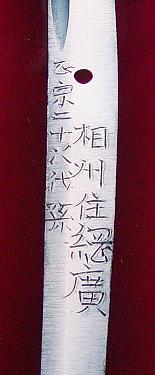 相州住綱廣
正宗二十八代孫